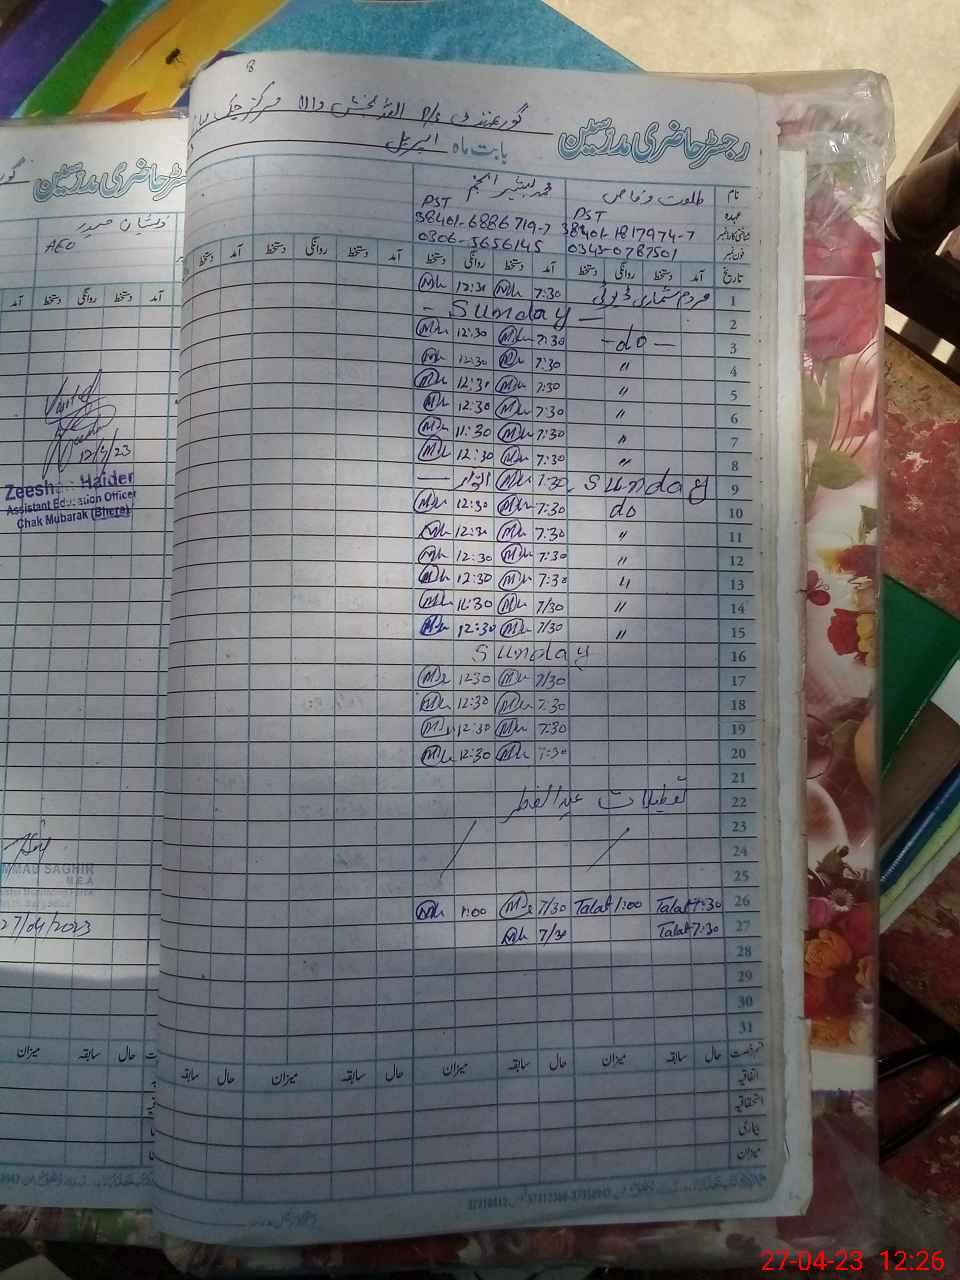 8
گورنمنٹ P/S اللہ بخش والا مرکز چک
رجسٹر حاضری مدرسین
بابت ماہ اپریل
نام طلعت وقاص محمد بشیر انجم
عہدہ PST PST
38401-1817974-7 38401-6886719-7
فون نمبر 0343-0787501 0306-5656145
تاریخ آمد دستخط روانگی دستخط آمد دستخط روانگی دستخط آمد دستخط روانگی دستخط
1 مردم شماری ڈیوٹی 7:30 12:30
2 - Sunday -
3 -do- 7:30 12:30
4 " 7:30 12:30
5 " 7:30 12:30
6 " 7:30 12:30
7 " 7:30 11:30
8 " 7:30 12:30
9 Sunday 7:30 اتوار
10 do 7:30 12:30
11 " 7:30 12:30
12 " 7:30 12:30
13 " 7:30 12:30
14 " 7/30 11:30
15 " 7/30 12:30
16 Sunday
17 7/30 12:30
18 7:30 12:30
19 7:30 12:30
20 7:30 12:30
21
22 تعطیلات عید الفطر
23
24
25
26 Talat 7:30 Talat 1:00 7/30 1:00
27 Talat 7:30 7/30
28
29
30
31
قسم رخصت حال سابقہ میزان حال سابقہ میزان حال سابقہ میزان حال سابقہ
اتفاقیہ
استحقاقیہ
بیماری
میزان
رجسٹر حاضری مدرسین
ذیشان حیدر
AEO
آمد دستخط روانگی دستخط آمد
Visited
12/4/23
Zeeshan Haider
Assistant Education Officer
Chak Mubarak (Bhera)
MMAD SAGHIR
M.E.A
27/04/2023
حال سابقہ میزان
27-04-23 12:26